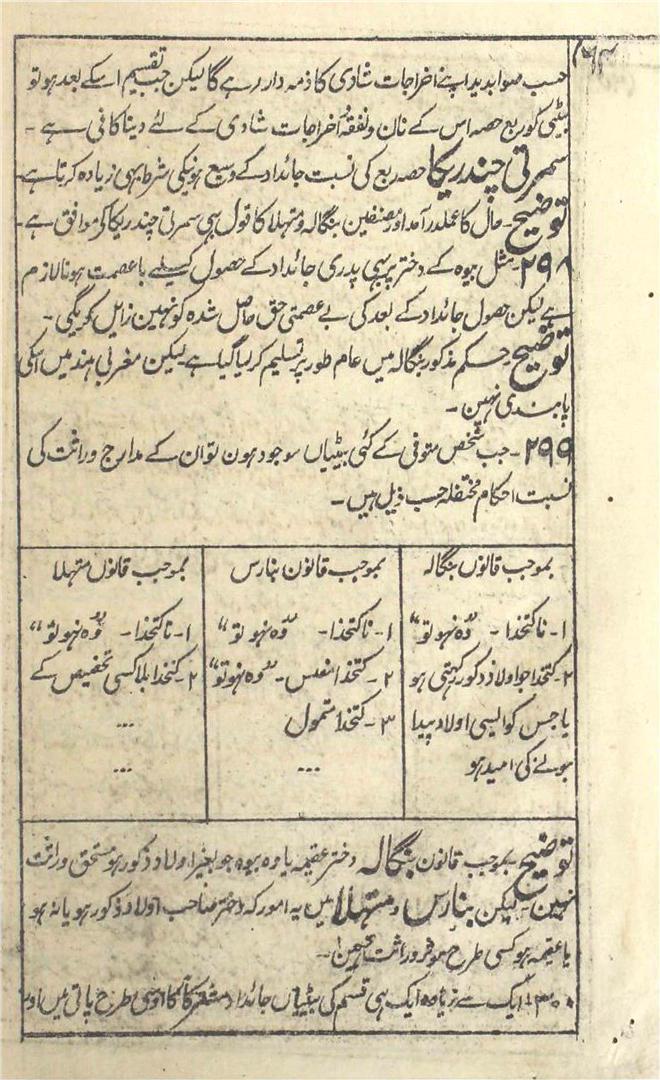 حسب صوابدید اپنے اخراجات شادی کا ذمہ دار رہے گا لیکن جب تقسیم اسکے بعد ہو تو
بیٹی کو ربع حصہ اس کے نان و نفقہ و اخراجات شادی کے لئے دینا کافی ہے ۔
سمرتی چندریکا حصہ ربع کی نسبت جائداد کے وسیع ہونیکی شرط بہی زیادہ کرتا ہے۔
توضیح۔ حال کا عملدرآمد اور مصنفین بنگالہ و متہلا کا قول بہی سمرتی چندریکا کے موافق ہے۔
۲۹۸۔ مثل بیوہ کے دختر پر بہی پدری جائداد کے حصول کیلئے باعصمت ہونا لازم
ہے لیکن حصول جائداد کے بعد کی بے عصمتی حق حاصل شدہ کو نہین زایل کریگی ۔
توضیح۔ حکم مذکور بنگالہ میں عام طور پر تسلیم کر لیا گیا ہے لیکن مغربی ہند میں اسکی
پابندی نہین ۔
۲۹۹۔ جب شخص متوفی کے کئی بیٹیاں موجود ہون تو ان کے مدارج وراثت کی
نسبت احکام مختلفہ حسب ذیل ہیں ۔
بموجب قانون بنگالہ
۱۔ ناکتخدا ۔ "وہ نہو تو"
۲۔ کتخدا جو اولاد ذکور رکہتی ہو
یا جس کو ایسی اولاد پیدا
ہونے کی امید ہو
بموجب قانون بنارس
۱۔ ناکتخدا ۔ "وہ نہو تو"
۲۔ کتخدا مفلس ۔ "وہ نہو تو"
۳۔ کتخدا متمول
...
بموجب قانون متہلا
۱۔ ناکتخدا ۔ "وہ نہو تو"
۲۔ کتخدا بلا کسی تخصیص کے
...
...
توضیح۔ بموجب قانون بنگالہ دختر عقیمہ یا وہ بیوہ جو بغیر اولاد ذکور ہو مستحق وراثت
نہین۔ لیکن بنارس و متہلا میں یہ امور کہ دختر صاحب اولاد ذکور ہو یا نہ ہو
یا عقیمہ ہو کسی طرح موثر وراثت نہین۔
۳۰۰۔ ایک سے زیادہ ایک ہی قسم کی بیٹیاں جائداد مشترکاً اوسی طرح پاتی ہیں اور